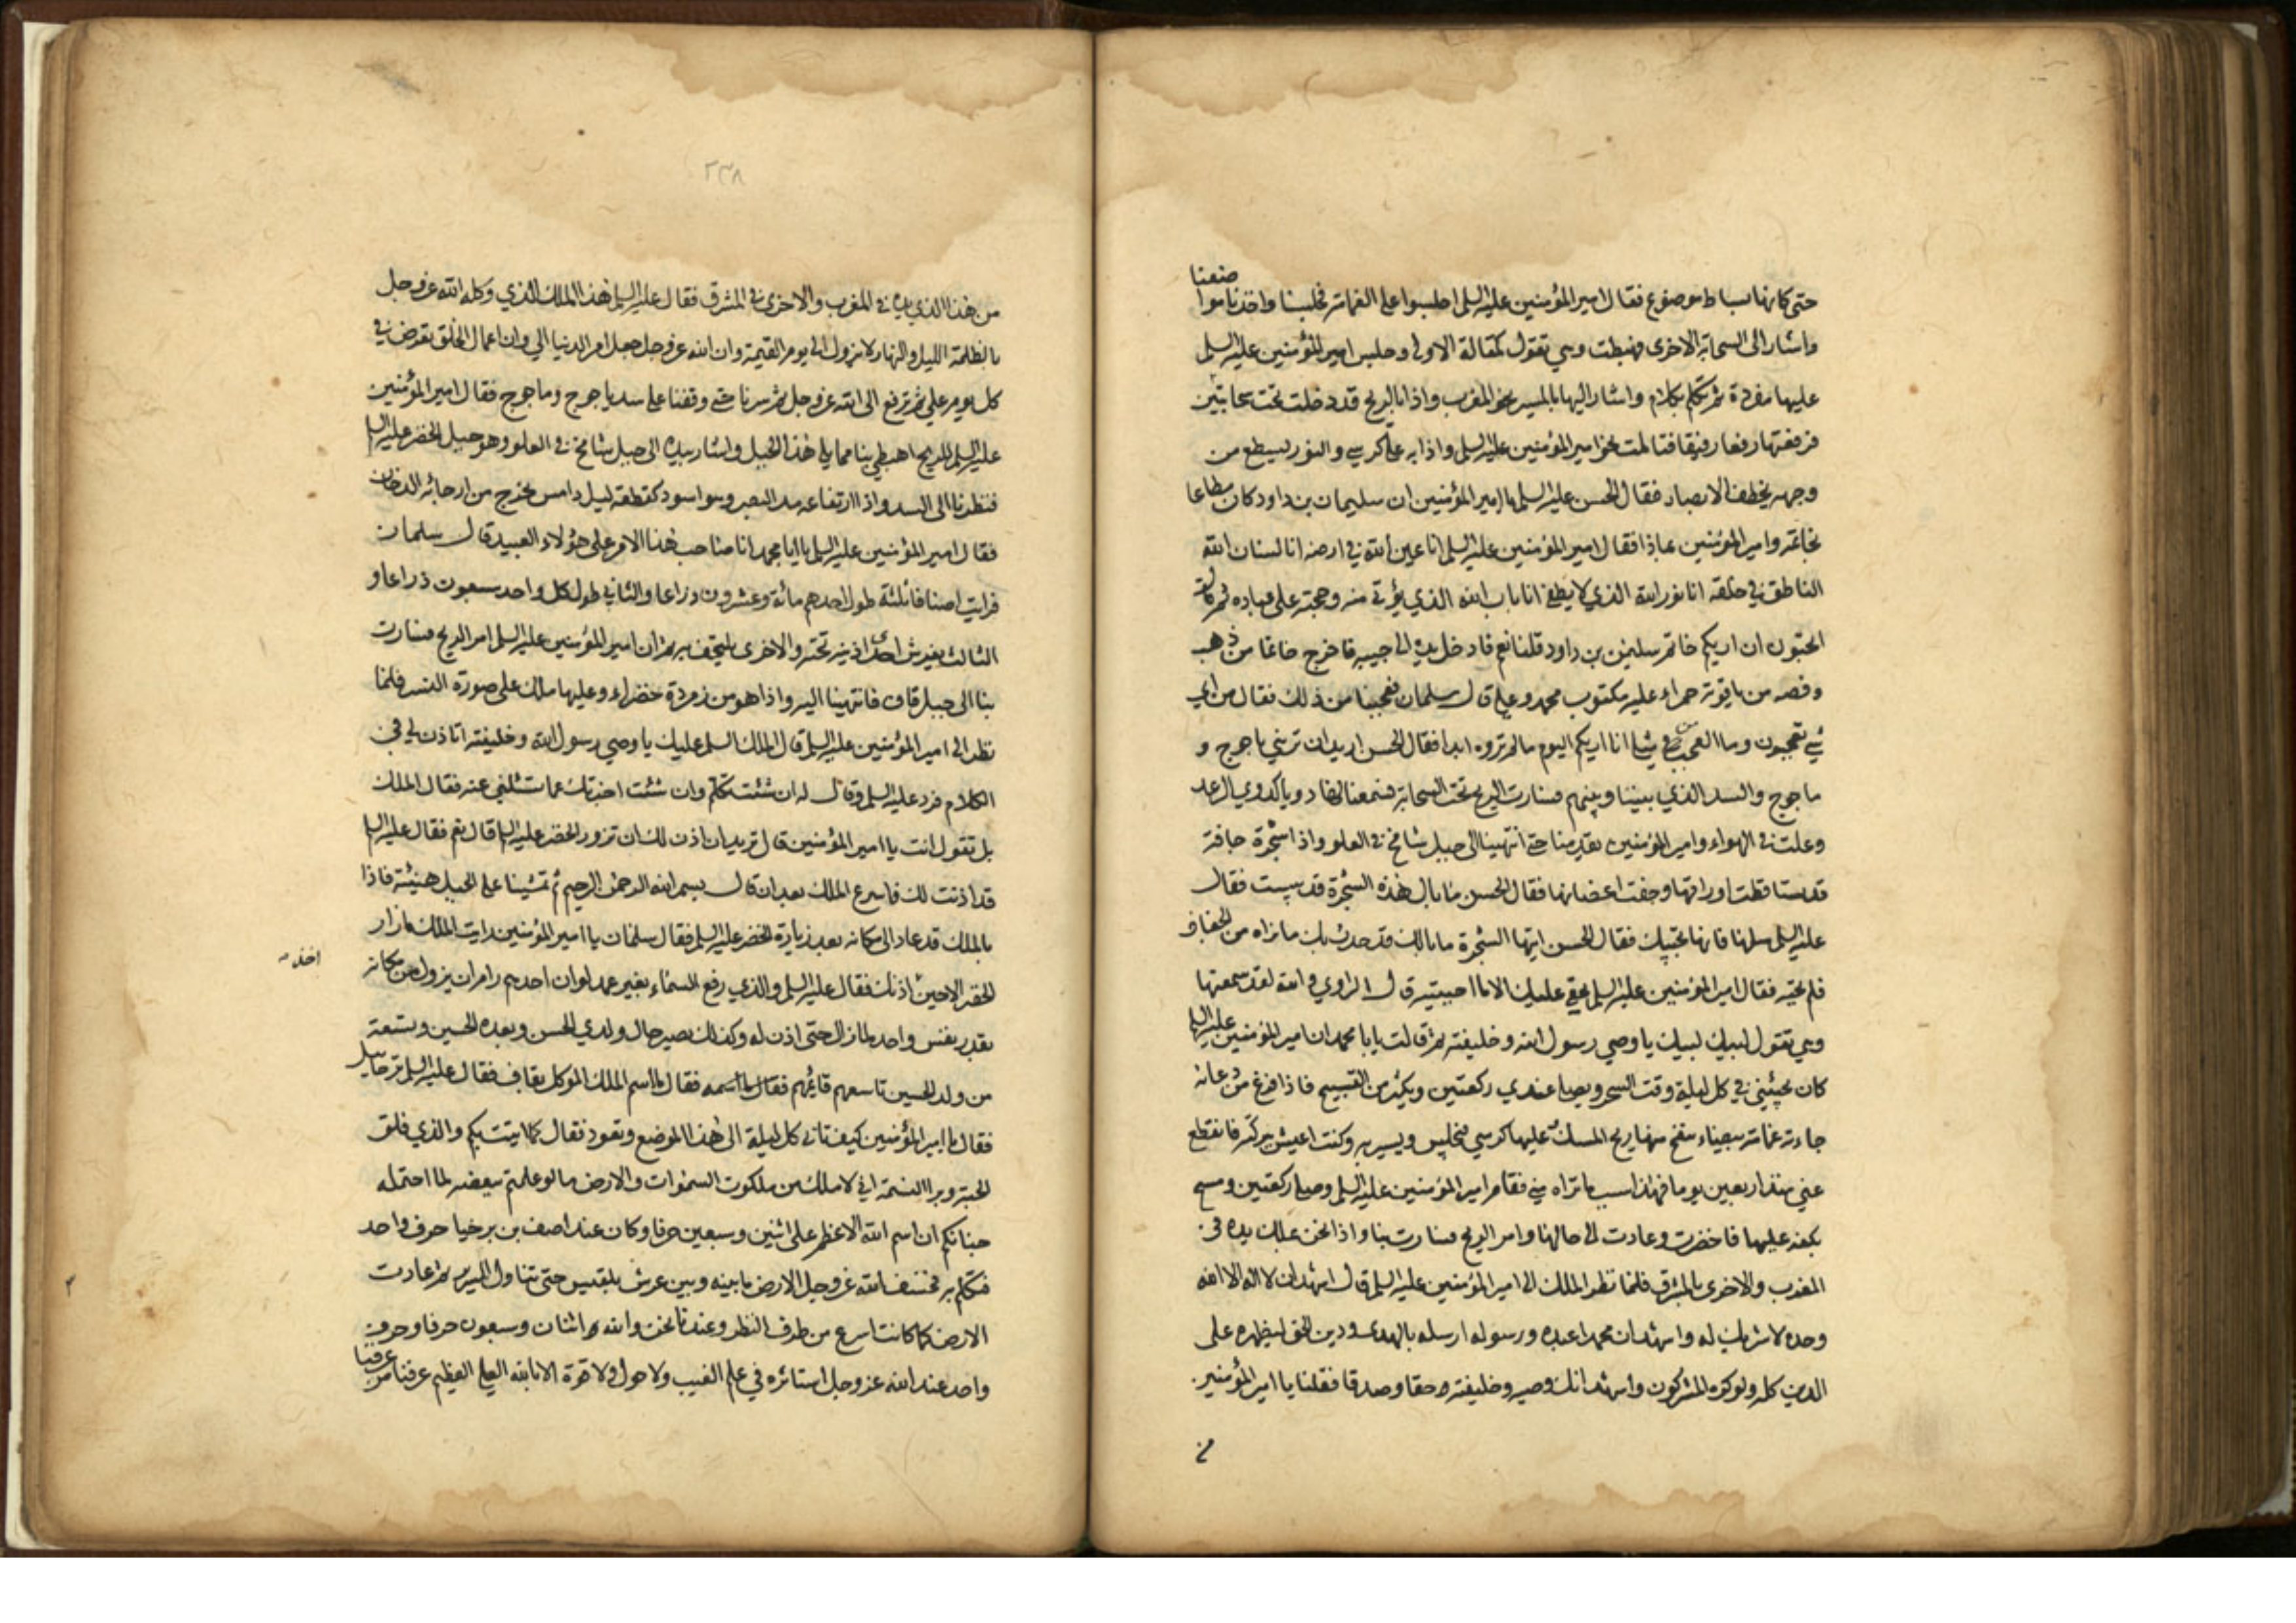 حتى كانهما بساط موضوع فقال امير المؤمنين عليه السلم اجلسوا على الغمامة فجلسنا واخذنا مواضعنا
واشار الى السحابة الاخرى فهبطت وهي تقول كمقالة الاولى وجلس امير المؤمنين عليه السلم
عليها مفردة ثم تكلم بكلام واشار اليها بالمسير نحو المغرب واذا بالريح قد دخلت تحت سحابتين
فرفعتهما رفعا رفيقا فتالمت نحو امير المؤمنين عليه السلم واذا به على كرسي والنور يسطع من
وجهه يخطف الابصار فقال الحسن عليه السلم يا امير المؤمنين ان سليمان بن داود كان مطاعا
بخاتمه وامير المؤمنين بماذا فقال امير المؤمنين عليه السلم انا عين الله في ارضه انا لسان الله
الناطق في خلقه انا نور الله الذي لا يطفئ انا باب الله الذي يؤتى منه وحجته على عباده ثم قال
اتحبون ان اريكم خاتم سليمن بن داود قلنا نعم فادخل يده الى جيبه فاخرج خاتما من ذهب
وفصه من ياقوتة حمراء عليه مكتوب محمد وعلي قال سلمان فعجبنا من ذلك فقال من اي
شي تعجبون وما العجب من مثلي انا اريكم اليوم ما لم تروه ابدا فقال الحسن اريد ان تريني ياجوج و
ماجوج والسد الذي بيننا وبينهم فسارت الريح تحت السحابة فسمعنا لها دويا كدوي الرعد
وعلت في الهواء وامير المؤمنين يقدمنا حتى انتهينا الى جبل شامخ في العلو واذا شجرة جافة
قد تساقطت اوراقها وجفت اغصانها فقال الحسن ما بال هذه الشجرة قد يبست فقال
عليه السلم سلها فانها تجيبك فقال الحسن ايتها الشجرة ما بالك قد حدث بك ما نراه من الجفاف
فلم تجبه فقال امير المؤمنين عليه السلم بحقي عليك الا ما اجبتيه قال الراوي والله لقد سمعتها
وهي تقول لبيك لبيك يا وصي رسول الله وخليفته ثم قالت يابا محمد ان امير المؤمنين عليه السلم
كان يجيئني في كل ليلة وقت السحر ويصلي عندي ركعتين ويكثر من التسبيح فاذا فرغ من دعائه
جاءته غمامة بيضاء ينفح منها ريح المسك عليها كرسي فيجلس ويسير به وكنت اعيش ببركته فانقطع
عني منذ اربعين يوما فهذا سبب ما تراه مني فقام امير المؤمنين عليه السلم وصلى ركعتين ومسح
بكفه عليها فاخضرت وعادت الى حالها وامر الريح فسارت بنا واذا نحن بملك يده في
المغرب والاخرى بالمشرق فلما نظر الملك الى امير المؤمنين عليه السلم قال اشهد ان لا اله الا الله
وحده لا شريك له واشهد ان محمدا عبده ورسوله ارسله بالهدى ودين الحق ليظهره على
الدين كله ولو كره المشركون واشهد انك وصيه وخليفته حقا وصدقا فقلنا يا امير المؤمنين
من
٢٣٨
من هذا الذي يده في المغرب والاخرى في المشرق فقال عليه السلم هذا الملك الذي وكله الله عز وجل
بالظلمة الليل والنهار لا يزول الى يوم القيمة وان الله عز وجل جعل امر الدنيا الي وان اعمال الخلق تعرض في
كل يوم علي ثم ترفع الى الله عز وجل ثم سرنا حتى وقفنا على سد ياجوج وماجوج فقال امير المؤمنين
عليه السلم للريح اهبطي بنا مما يلي هذا الجبل واشار بيده الى جبل شامخ في العلو وهو جبل الخضر عليه السلم
فنظرنا الى السد واذا ارتفاعه مد البصر وهو اسود كقطعة ليل دامس يخرج من ارجائه الدخان
فقال امير المؤمنين عليه السلم يا ابا محمد انا صاحب هذا الامر على هؤلاء العبيد قال سلمان
فرايت اصنافا ثلثة طول احدهم مائة وعشرون ذراعا والثاني طول كل واحد سبعون ذراعا و
الثالث يفرش احدى اذنيه تحته والاخرى يلتحف به ثم ان امير المؤمنين عليه السلم امر الريح فسارت
بنا الى جبل قاف فانتهينا اليه واذا هو من زمردة خضراء وعليها ملك على صورة النسر فلما
نظر الى امير المؤمنين عليه السلم قال الملك السلم عليك يا وصي رسول الله وخليفته اتاذن لي في
الكلام فرد عليه السلم وقال له ان شئت تكلم وان شئت اخبرتك عما تسئلني عنه فقال الملك
بل تقول انت يا امير المؤمنين قال تريد ان اذن لك ان تزور الخضر عليه السلم قال نعم فقال عليه السلم
قد اذنت لك فاسرع الملك بعد ان قال بسم الله الرحمن الرحيم ثم تمشينا على الجبل هنيئة فاذا
بالملك قد عاد الى مكانه بعد زيارة الخضر عليه السلم فقال سلمان يا امير المؤمنين رايت الملك ما زار
الخضر الا حين اخذ اذنك فقال عليه السلم والذي رفع السماء بغير عمد لو ان احدهم رام ان يزول من مكانه
بقدر نفس واحد لما زال حتى اذن له وكذلك يصير حال ولدي الحسن وبعده الحسين وتسعة
من ولد الحسين تاسعهم قائمهم فقال ما اسمه فقال ما اسم الملك الموكل بقاف فقال عليه السلم ترحائيل
فقال يا امير المؤمنين كيف تاتي كل ليلة الى هذا الموضع وتعود فقال كما اتيت بكم والذي فلق
الحبة وبرا النسمة اني لاملك من ملكوت السموات والارض ما لو علمتم ببعضه لما احتمله
جنانكم ان اسم الله الاعظم على اثنين وسبعين حرفا وكان عند اصف بن برخيا حرف واحد
فتكلم به فخسف الله عز وجل الارض ما بينه وبين عرش بلقيس حتى تناول السرير ثم عادت
الارض كما كانت اسرع من طرف النظر وعندنا نحن والله اثنان وسبعون حرفا وحرف
واحد عند الله عز وجل استاثره في علم الغيب ولا حول ولا قوة الا بالله العلي العظيم عرفنا من عرفنا